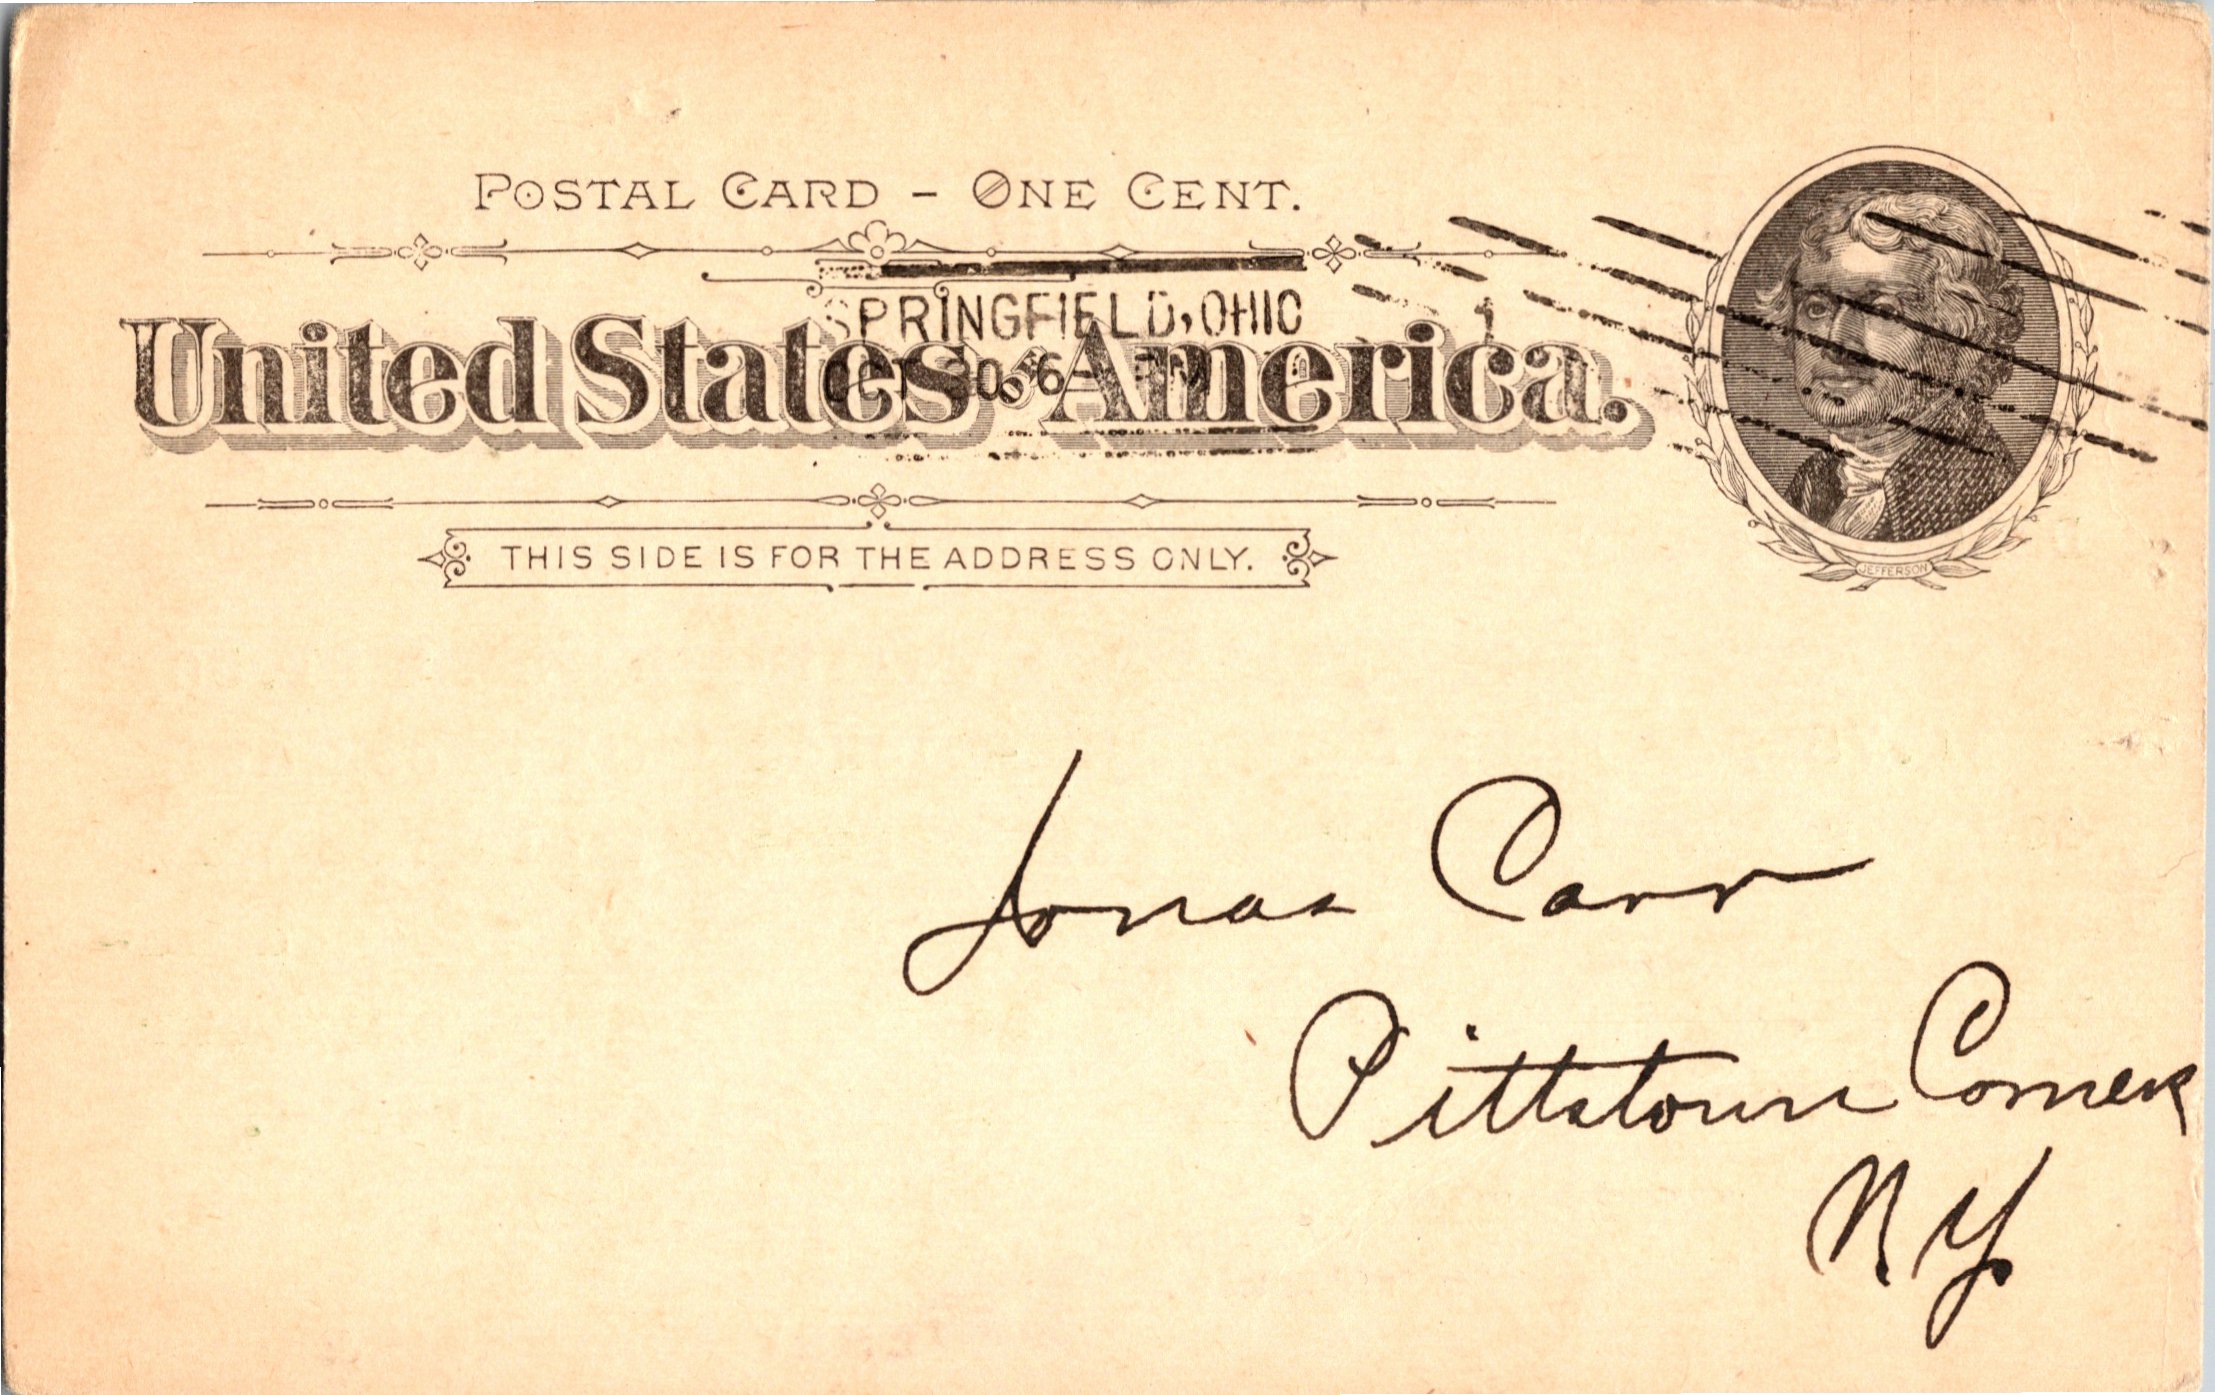 POSTAL CARD - ONE CENT.
SPRINGFIELD, OHIO
United States of America.
OCT 30
THIS SIDE IS FOR THE ADDRESS ONLY.
JEFFERSON
Jonas Carr
Pittstown Corners
NY